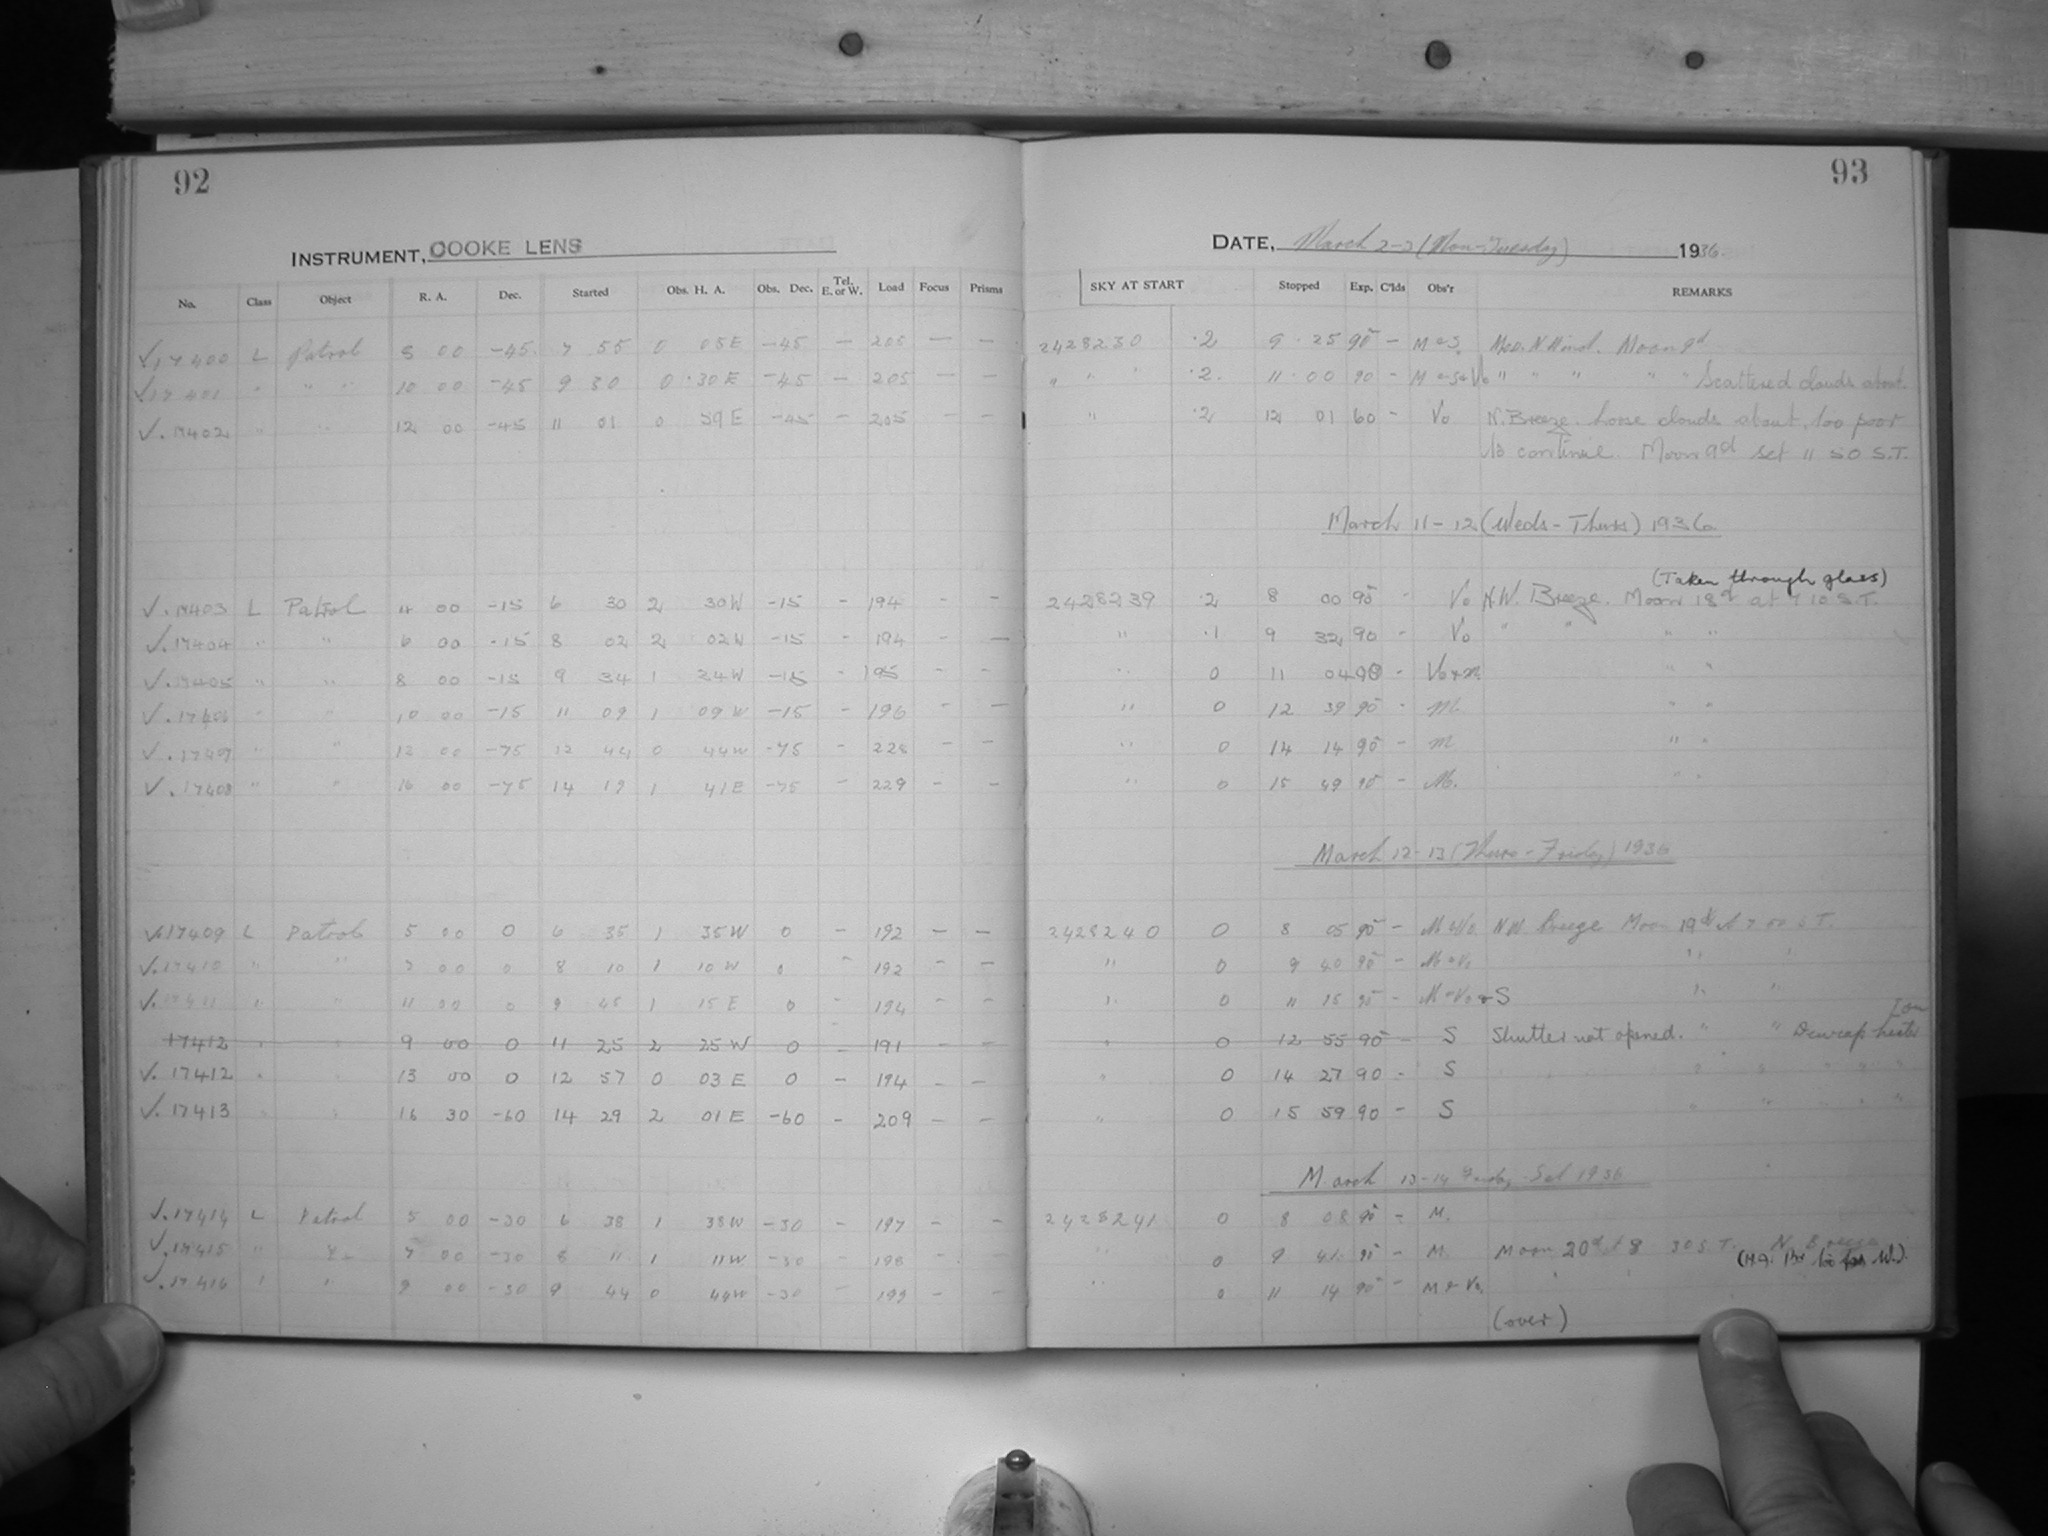 92
93
INSTRUMENT, COOKE LENS
DATE, March 2-3 (Mon-Tuesday) 1936.
No. Class Object R. A. Dec. Started Obs. H. A. Obs. Dec. Tel. E. or W. Load Focus Prisms SKY AT START Stopped Exp. C'lds Obs'r REMARKS
√17400 L Patrol 8 00 -45 7 55 0 05E -45 - 205 - - 2428230 .2 9.25 90 - M&S. Mod. N Wind. Moon 9d
√17401 " " " 10 00 -45 9 30 0.30E -45 - 205 - - " " " .2. 11.00 90 - M&S&Vo " " " " " Scattered clouds about
√.17402 " " 12 00 -45 11 01 0 59E -45 205 " .2 12 01 60 - Vo N. Breeze. loose clouds about, too poor
to continue. Moon 9d set 11 50 S.T.
March 11-12 (Weds-Thurs) 1936
(Taken through glass)
√.17403 L Patrol 4 00 -15 6 30 2 30W -15 - 194 - - 2428239 .2 8 00 90 - Vo N.W. Breeze. Moon 18d at 7 10 S.T.
√.17404 " " 6 00 -15 8 02 2 02W -15 - 194 - - " .1 9 32 90 - Vo " " " "
√.17405 " " 8 00 -15 9 34 1 34W -15 - 195 - - " 0 11 04 90 - Vo+M. " "
√.17406 " " 10 00 -15 11 09 1 09W -15 - 196 - - " 0 12 39 90 - M. " "
√.17407 " " 12 00 -75 12 44 0 44W -75 - 228 - - " 0 14 14 90 - M " "
√.17408 " " 16 00 -75 14 19 1 41E -75 - 229 - - " 0 15 49 90 - M. " "
March 12-13 (Thurs-Friday) 1936
√.17409 L Patrol 5 00 0 6 35 1 35W 0 - 192 - - 2428240 0 8 05 90 - M&Vo. NW. Breeze Moon 19d at 7 50 S.T.
√.17410 " " 7 00 0 8 10 1 10W 0 - 192 - - " 0 9 40 90 - M&Vo " "
√.17411 " " 11 00 0 9 45 1 15E 0 - 194 - - " 0 11 15 90 - M&Vo&S " "
17412 " " 9 00 0 11 25 2 25W 0 - 191 - - " 0 12 55 90 - S Shutter not opened. " " Dewcap heater
√. 17412 " " 13 00 0 12 57 0 03E 0 - 194 - - " 0 14 27 90 - S " " " "
√. 17413 " " 16 30 -60 14 29 2 01E -60 - 209 - - " 0 15 59 90 - S " " " "
March 13-14 Friday-Sat 1936
√.17414 L Patrol 5 00 -30 6 38 1 38W -30 - 197 - - 2428241 0 8 08 90 - M.
√.17415 " " 7 00 -30 8 11 1 11W -30 - 198 - - " 0 9 41 90 - M Moon 20d at 8 30 S.T. N. Breeze
√.17416 " " 9 00 -30 9 44 0 44W -30 - 199 - - " 0 11 14 90 - M&Vo. (H.A. too far W.).
(over)